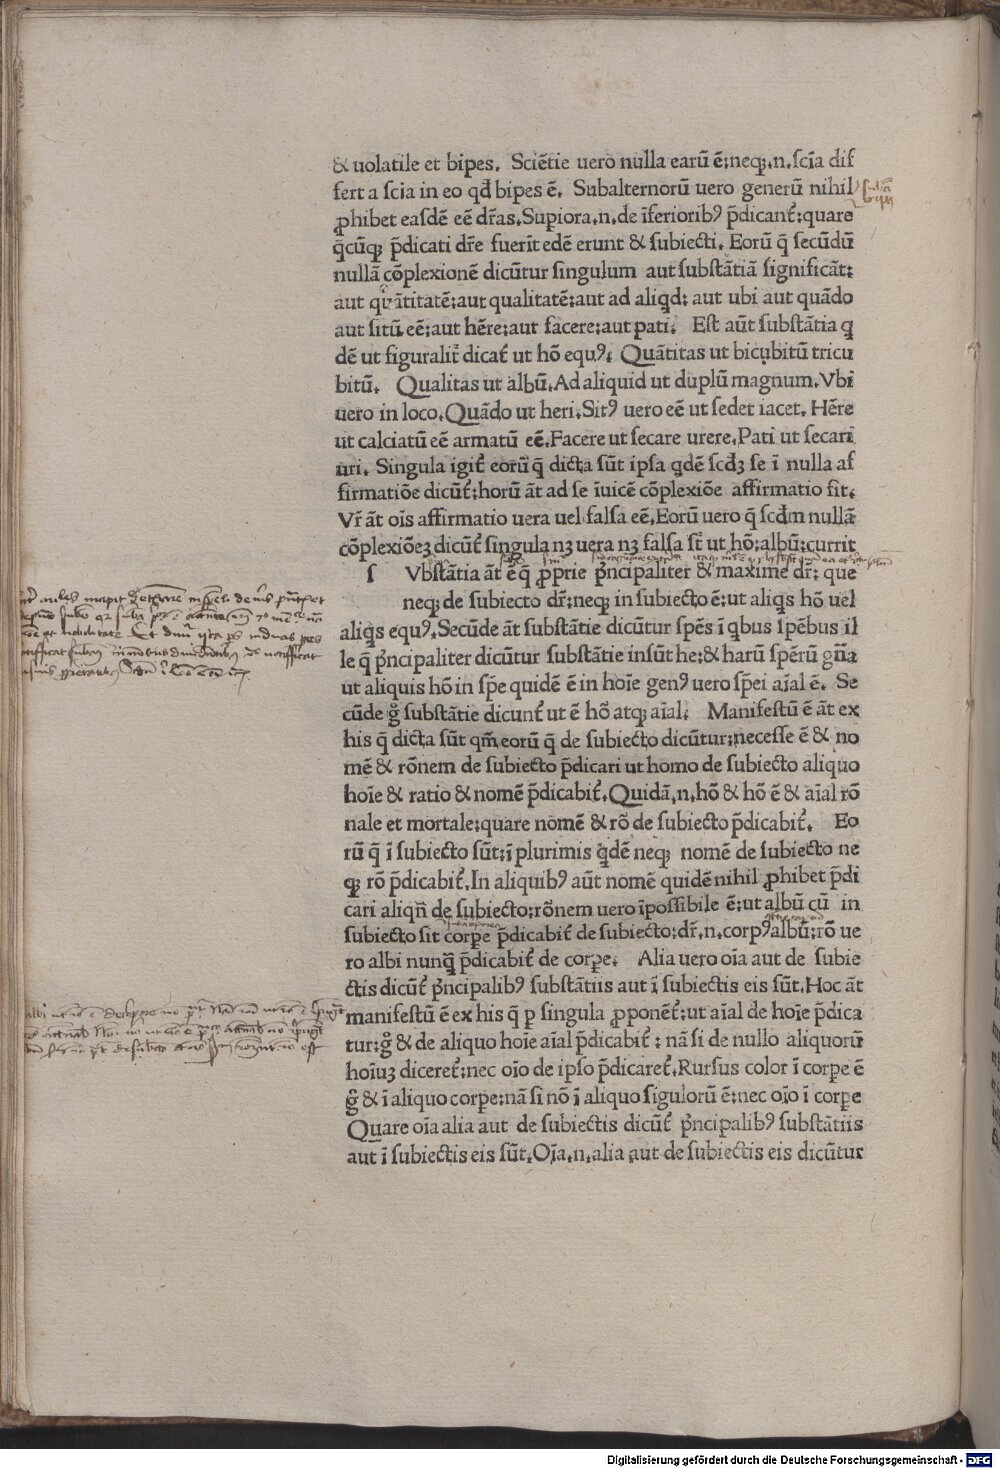 & uolatile et bipes. Sciētie uero nulla earū ē:neq;.n.scīa dif
fert a scia in eo qđ bipes ē. Subalternorū uero generū nihil
ꝓhibet easdē eē dr̄as.Supiora.n.de īferiorib⁹ p̄dicant᷑:quare
q̄cūq; p̄dicati dr̄e fuerīt edē erunt & subiecti. Eorū q̄ secūdū
nullā cōplexionē dicūtur singulum aut substātiā significāt:
aut quātitatē:aut qualitatē:aut ad aliqd: aut ubi aut quādo
aut sitū eē:aut hēre:aut facere:aut pati. Est aūt substātia q
dē ut figuralit᷑ dicat᷑ ut hō equ⁹. Quātitas ut bicubitū tricu
bitū. Qualitas ut albū.Ad aliquid ut duplū magnum.Vbi
uero in loco.Quādo ut heri.Sit⁹ uero eē ut sedet iacet. Hēre
ut calciatū eē armatū eē.Facere ut secare urere.Pati ut secari
uri. Singula igit᷑ eorū q̄ dicta sūt ipsa qdē scđꝫ se ī nulla af
firmatiōe dicūt᷑:horū āt ad se īuicē cōplexiōe affirmatio fit.
Vr̄ āt oīs affirmatio uera uel falsa eē.Eorū uero q̄ scđm nullā
cōplexiōeꝫ dicūt᷑ singula nꝫ uera nꝫ falsa st̄ ut hō:albū:currit
s Vbstātia āt ē q̄ ꝓprie pͥncipaliter & maxime dr̄: que
neq; de subiecto dr̄:neq; in subiecto ē:ut aliqs hō uel
aliqs equ⁹.Secūde āt substātie dicūtur spēs ī qbus spēbus il
le q̄ pͥncipaliter dicūtur substātie insūt he:& harū spērū gn̄a
ut aliquis hō in spē quidē ē in hoīe gen⁹ uero sp̄ei aīal ē. Se
cūde gͦ substātie dicunt᷑ ut ē hō atq; aīal. Manifestū ē āt ex
his q̄ dicta sūt qm̄ eorū q̄ de subiecto dicūtur:necesse ē & no
mē & rōnem de subiecto p̄dicari ut homo de subiecto aliquo
hoīe & ratio & nomē p̄dicabit᷑.Quidā.n.hō & hō ē & aīal rō
nale et mortale:quare nomē & rō de subiecto p̄dicabit᷑. Eo
rū q̄ ī subiecto sūt:ī plurimis qdē neq; nomē de subiecto ne
q; rō p̄dicabit᷑.In aliquib⁹ aūt nomē quidē nihil ꝓhibet p̄di
cari aliqn̄ de subiecto:rōnem uero īpossibile ē:ut albū cū in
subiecto sit corpe p̄dicabit᷑ de subiecto:dr̄.n.corp⁹ albū:rō ue
ro albi nunq̄ p̄dicabit᷑ de corpe. Alia uero oīa aut de subie
ctis dicūt᷑ pͥncipalib⁹ substātiis aut ī subiectis eis sūt.Hoc āt
manifestū ē ex his q̄ p singula ꝓponēt᷑:ut aīal de hoīe p̄dica
tur:gͦ & de aliquo hoīe aīal p̄dicabit᷑: nā si de nullo aliquorū
hoīuꝫ diceret᷑:nec oīo de ipso p̄dicaret᷑.Rursus color ī corpe ē
gͦ & ī aliquo corpe:nā si nō ī aliquo sigulorū ē:nec oīo ī corpe
Quare oīa alia aut de subiectis dicūt᷑ pͥncipalib⁹ substātiis
aut ī subiectis eis sūt.Oīa.n.alia aut de subiectis eis dicūtur
Digitalisierung gefördert durch die Deutsche Forschungsgemeinschaft - DFG